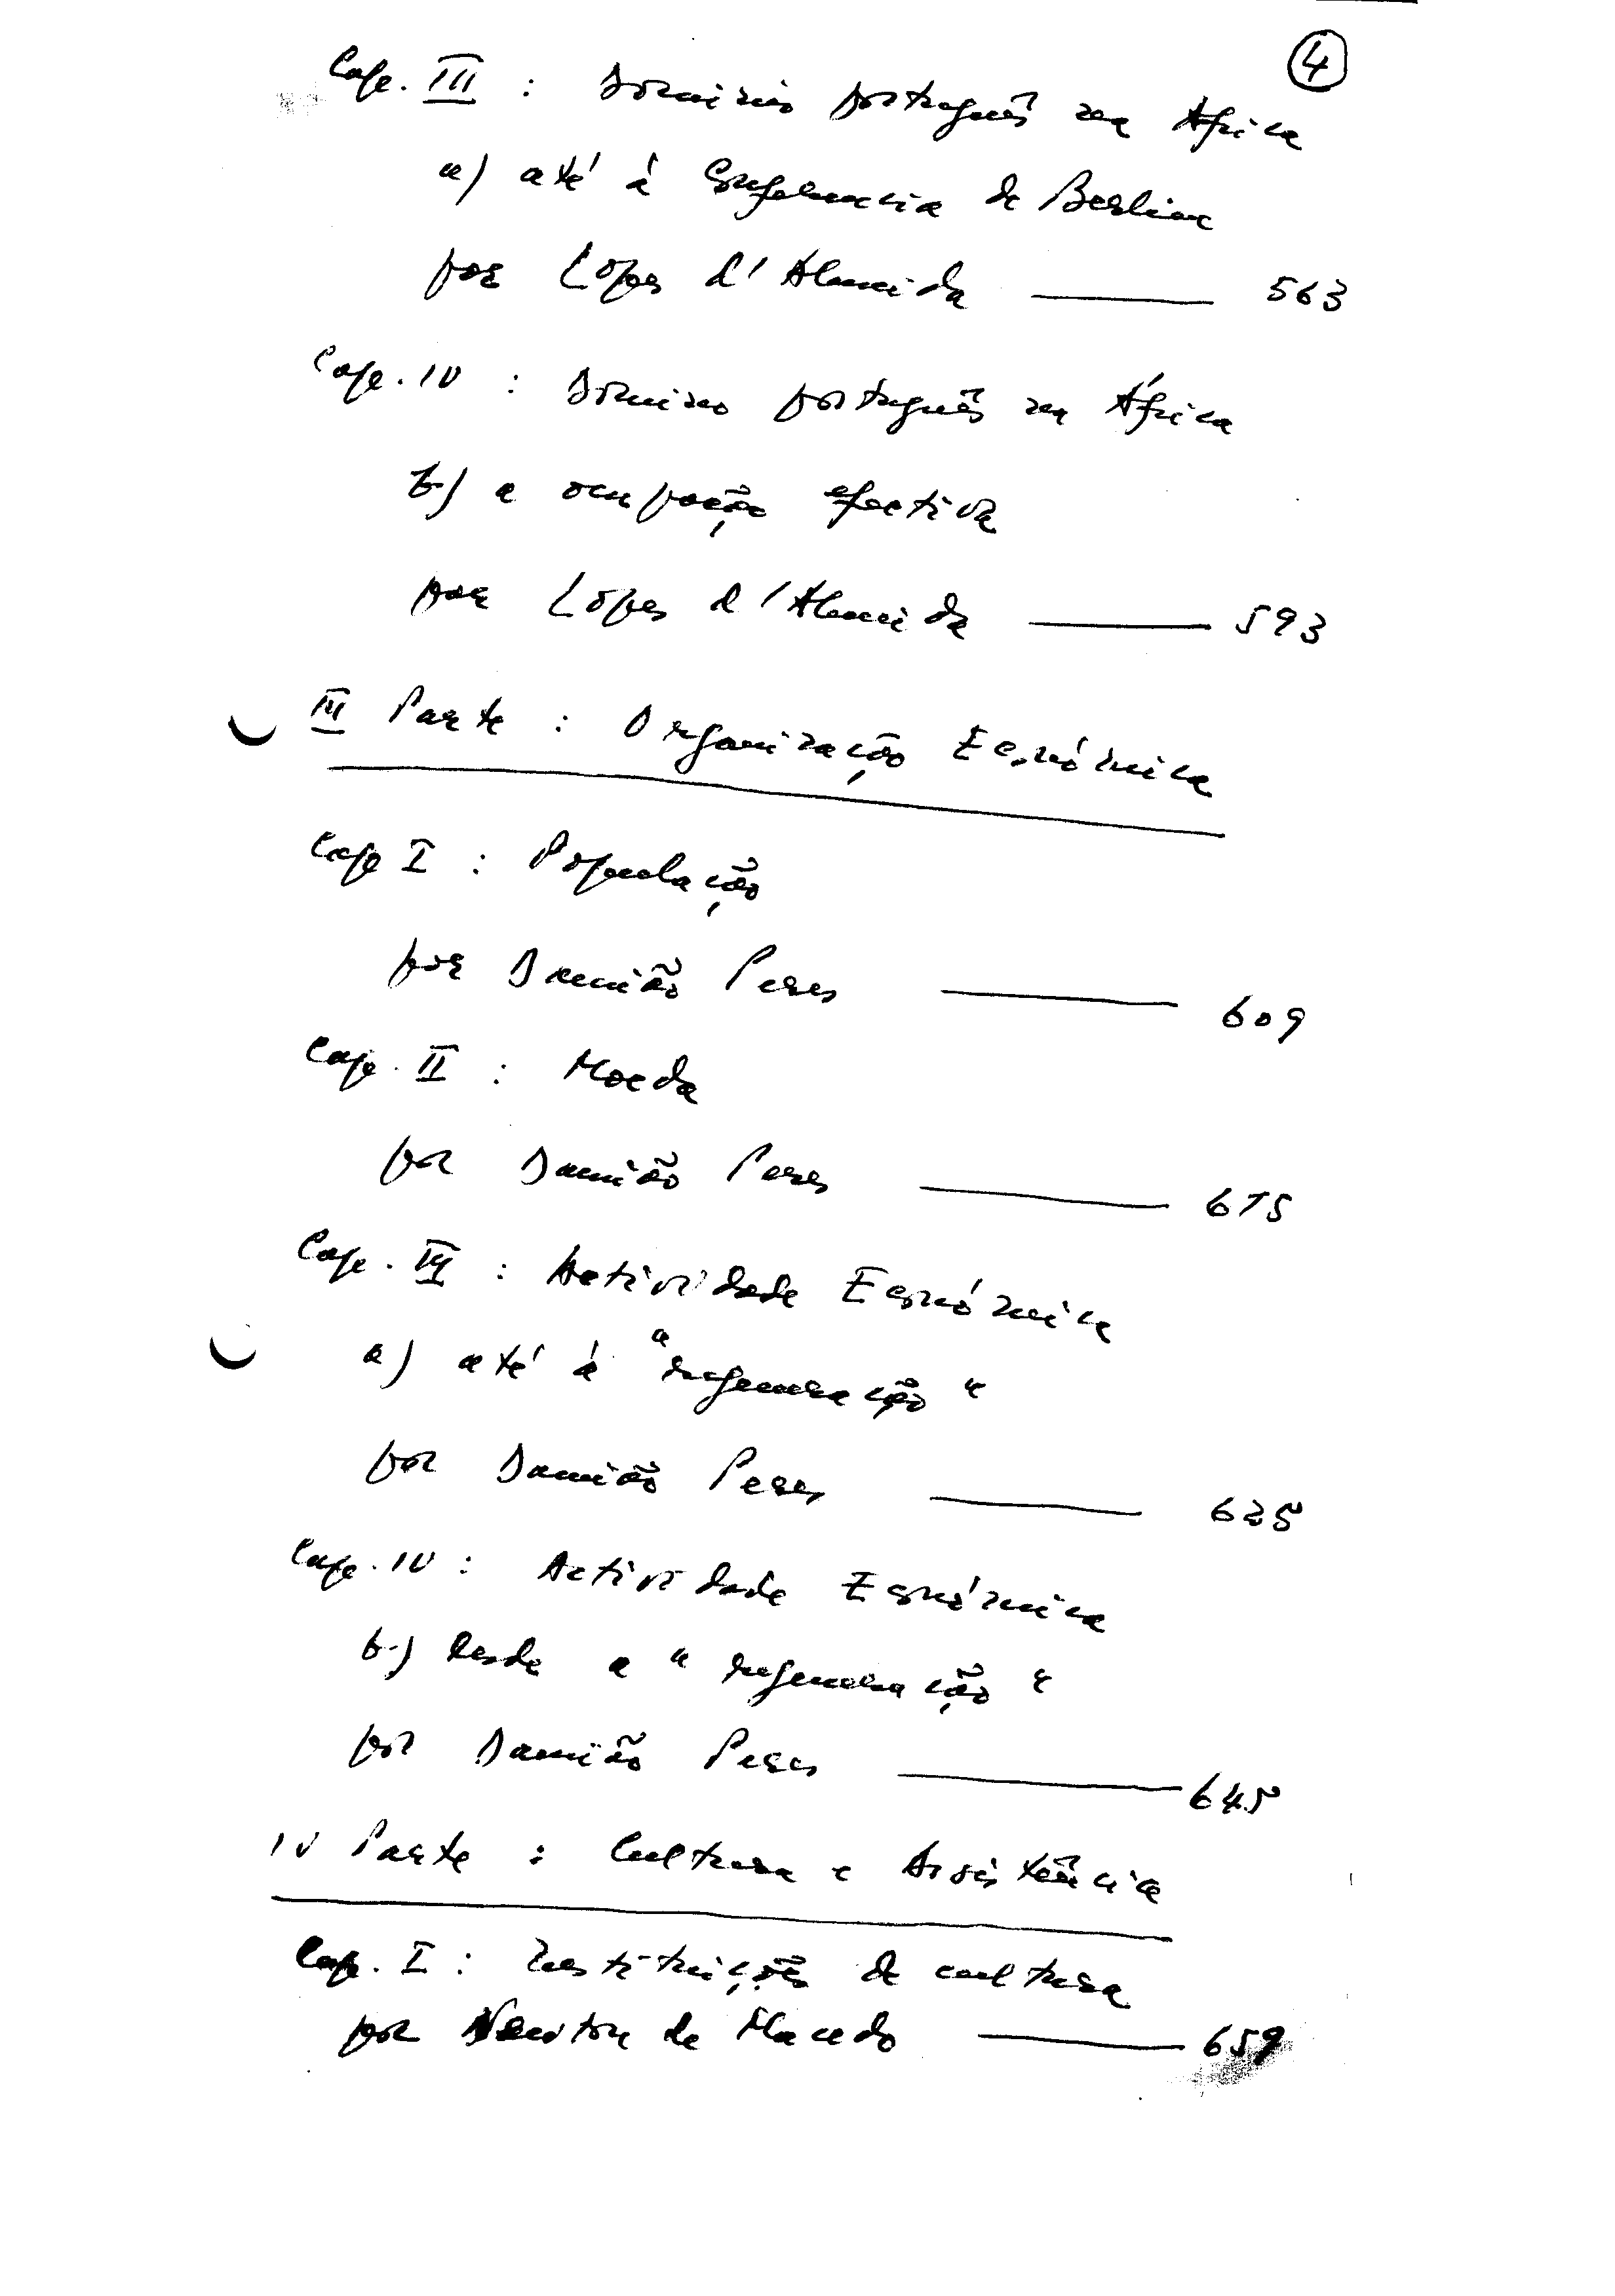 4
Cap. III : Domínio português na África
a) até à Conferencia de Berlim
por Lopes d'Almeida — 563
Cap. IV : Domínio português na África
b) a ocupação efectiva
por Lopes d'Almeida — 593
III Parte : Organização Económica
Cap I : População
por Damião Peres — 609
Cap. II : Moeda
por Damião Peres — 615
Cap. III : Actividade Económica
a) até à "regeneração"
por Damião Peres — 625
Cap. IV : Actividade Económica
b) desde a "regeneração"
por Damião Peres — 645
IV Parte : Cultura e Assistência
Cap. I : Instituições de cultura
por Newton de Macedo — 659